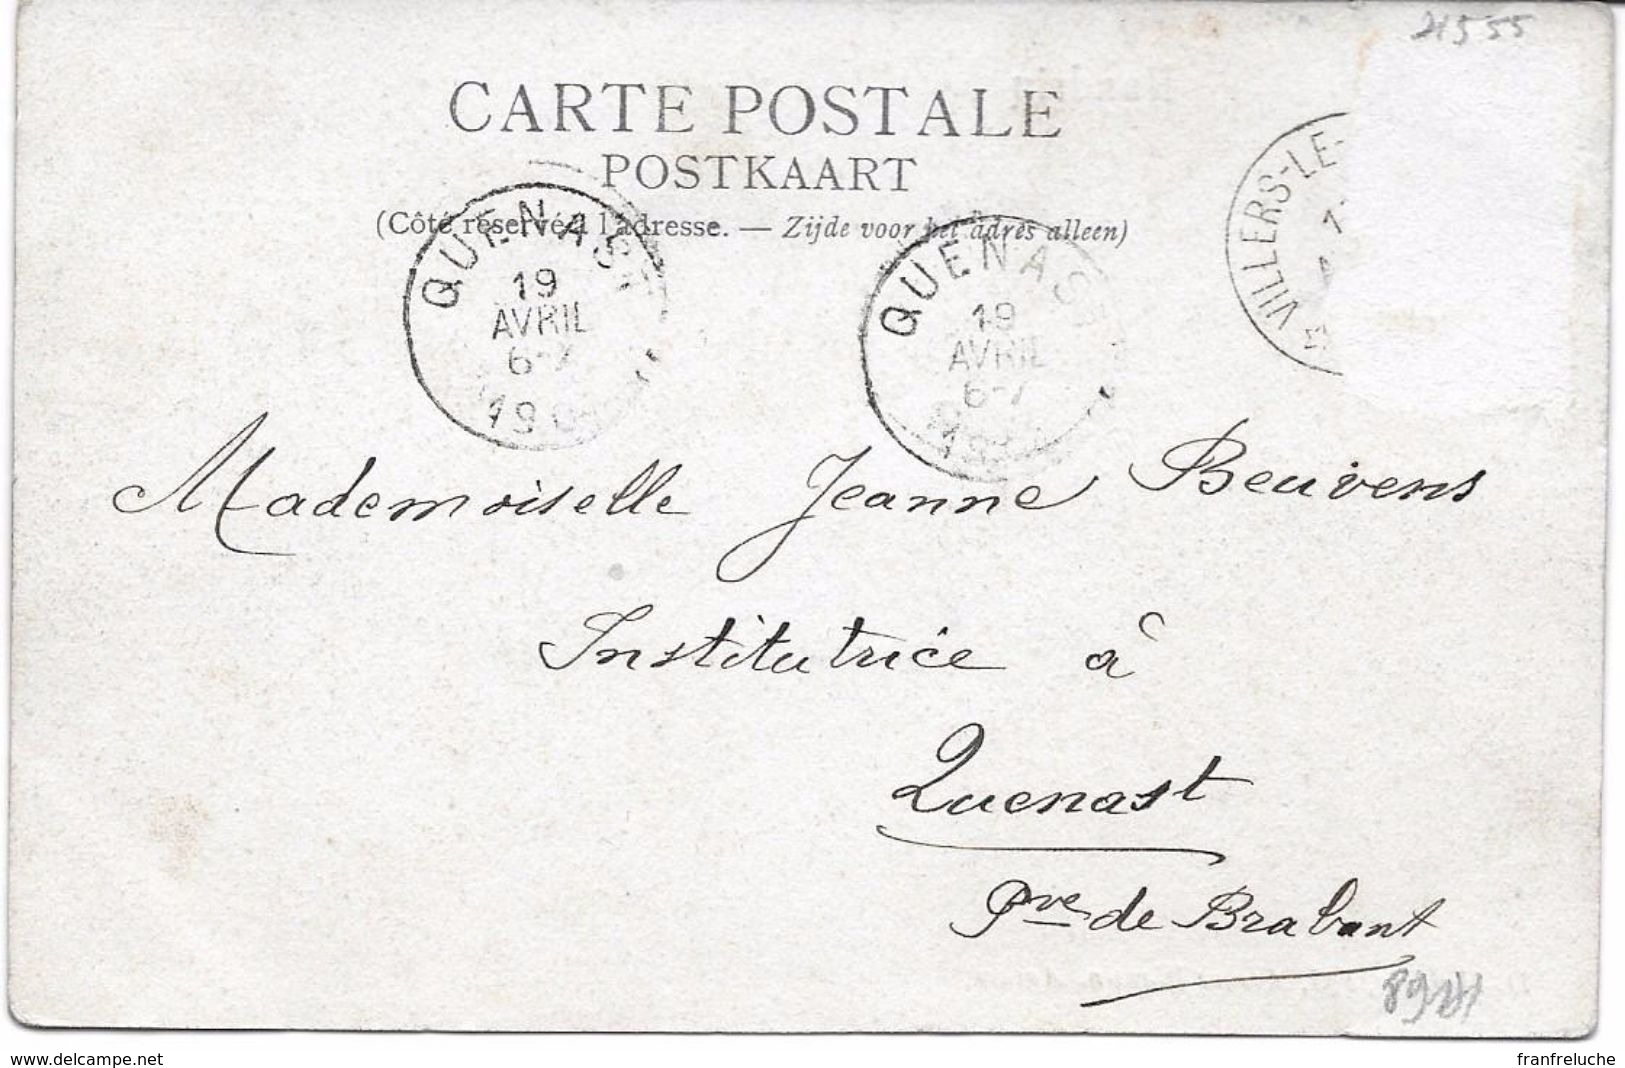 21555
CARTE POSTALE
POSTKAART
(Côté réservé à l'adresse. — Zijde voor het adres alleen)
QUENAST
19
AVRIL
6-7
190
QUENAST
19
AVRIL
6-7
VILLERS-LE-
Mademoiselle Jeanne Beuvens
Institutrice à
Quenast
Pve de Brabant
www.delcampe.net
franfreluche